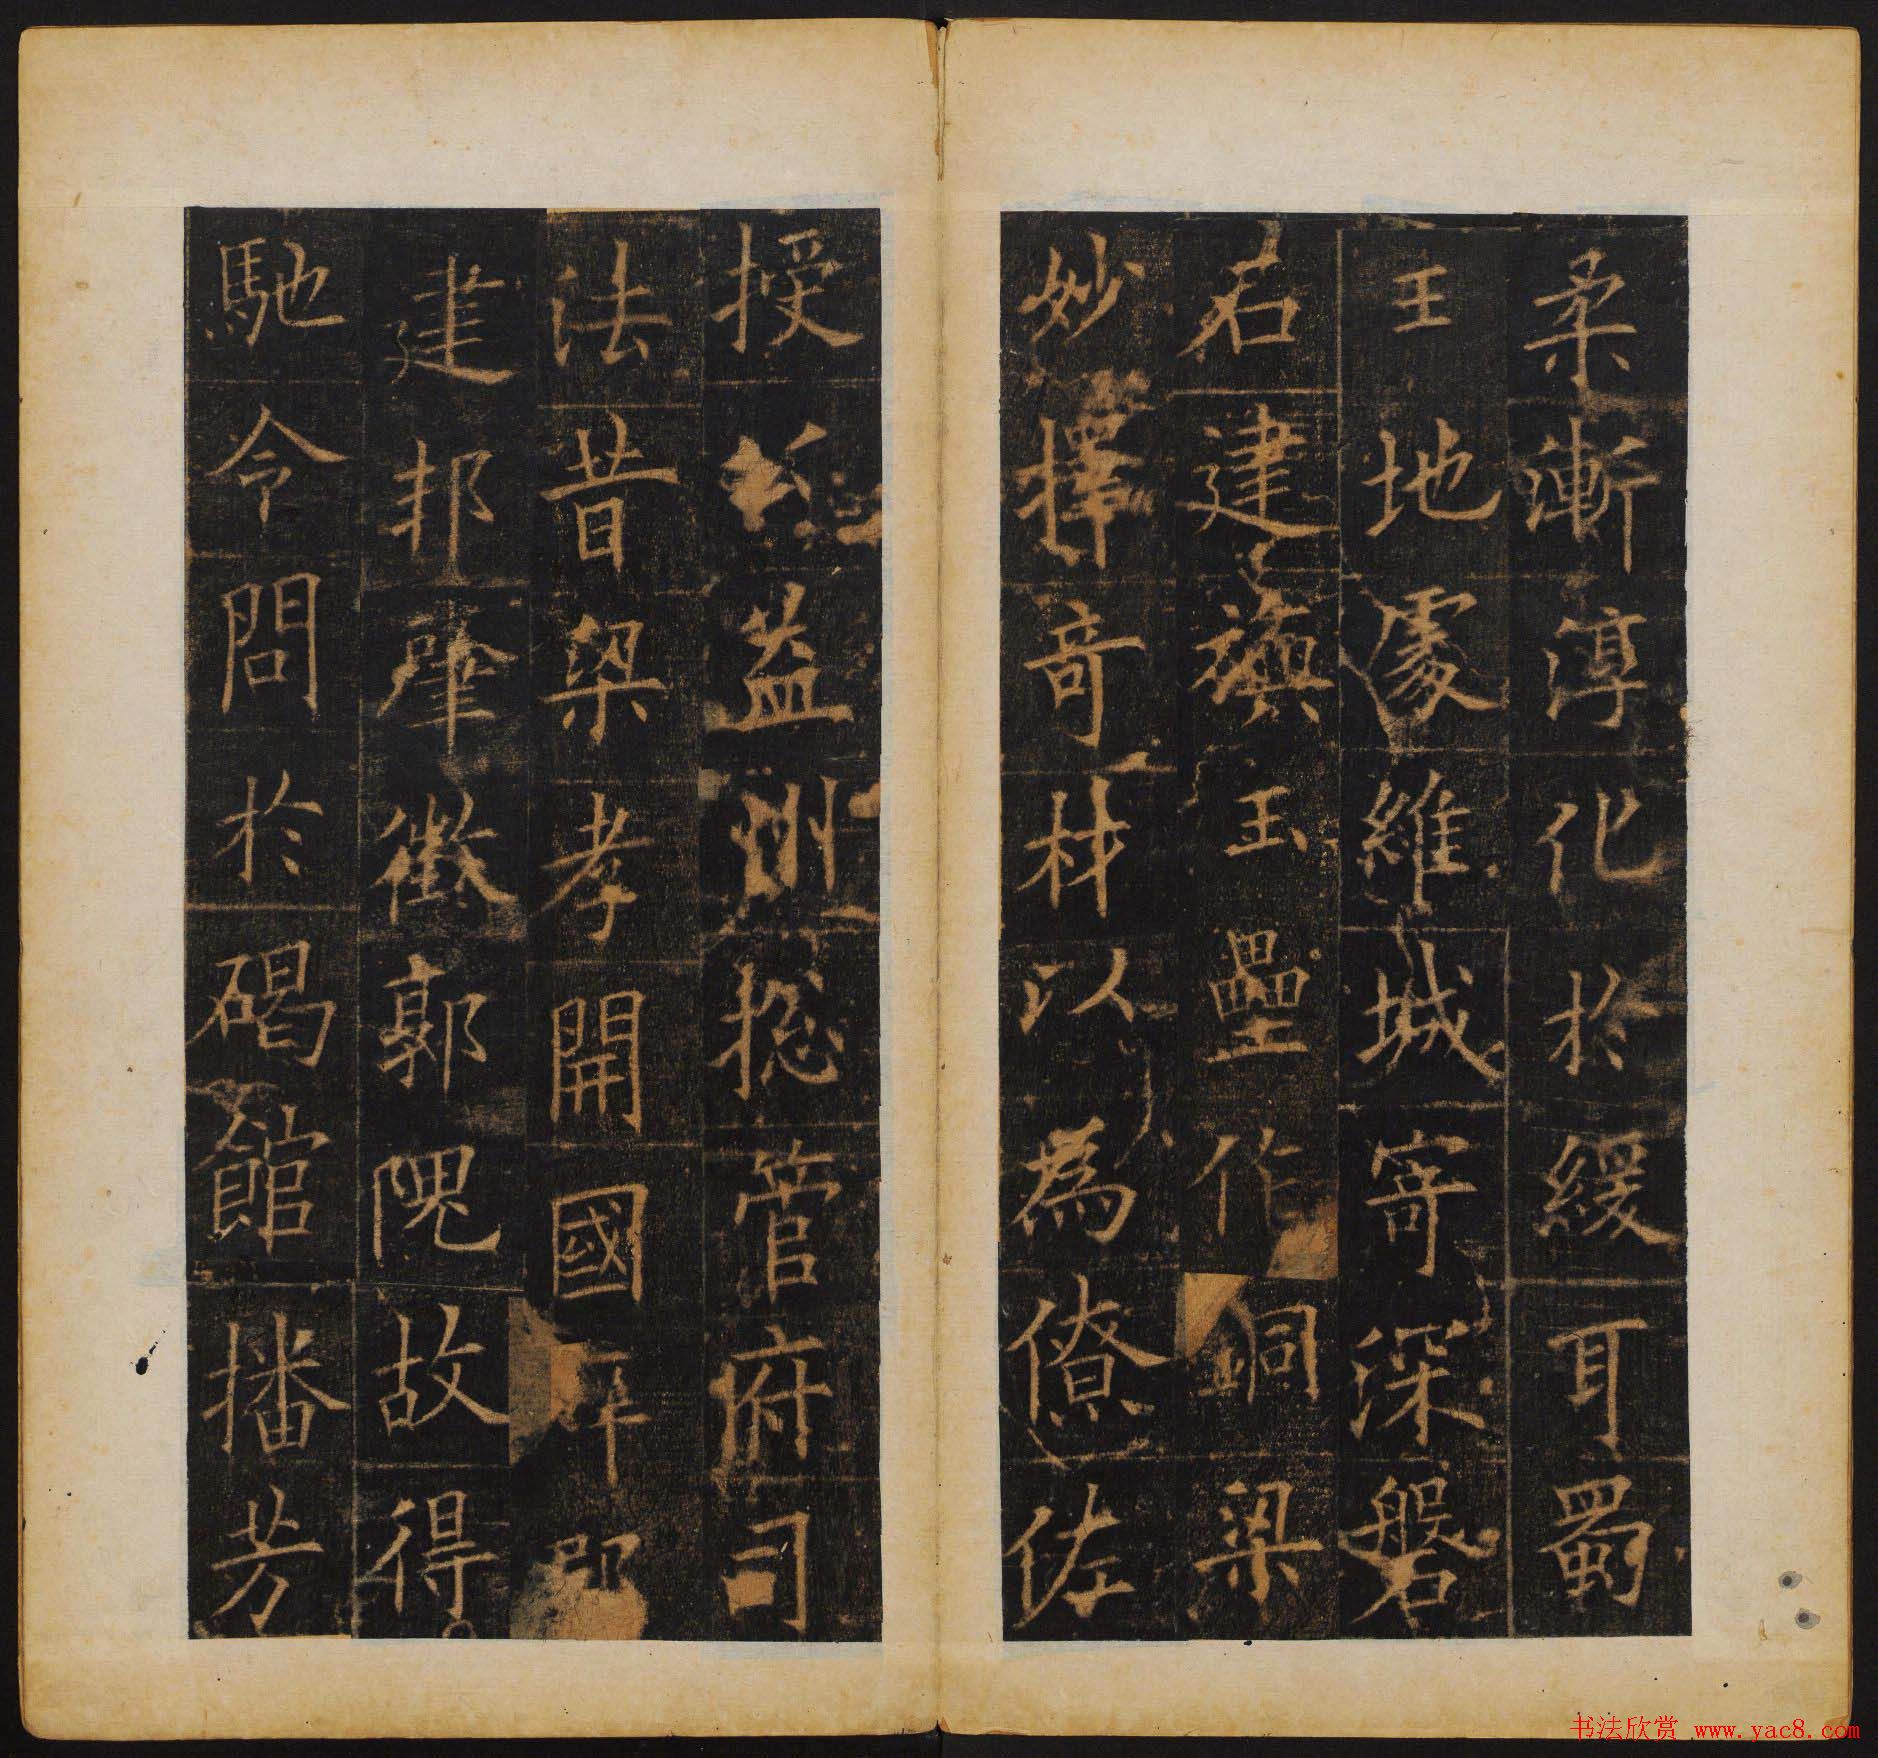 柔漸淳化於緩耳蜀
王地處維城寄深盤
石建旟玉壘作銅梁
妙擇奇材以為僚佐
授公益州總管府司
法昔梁孝開國
建邦肇徵郭隗故得
馳令問於碣館播芳
书法欣赏 www.yac8.com